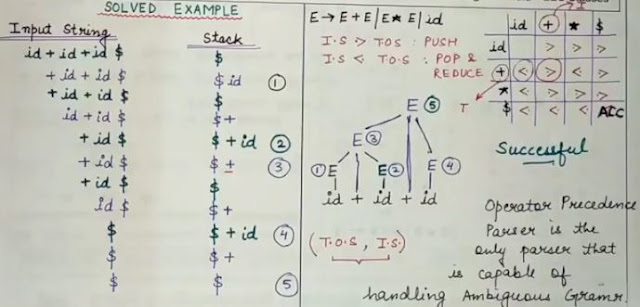 SOLVED EXAMPLE
Input String Stack
id + id + id $ $
+ id + id $ $ id ①
+ id + id $ $
id + id $ $ +
+ id $ $ + id ②
+ id $ $ + ③
+ id $ $
id $ $ +
$ $ + id ④
$ $ +
$ $ ⑤
E → E + E | E * E | id
I.S > TOS : PUSH
I.S < TOS : POP &
REDUCE
E ⑤
E ③
① E E ② E ④
id + id + id
(T.O.S, I.S.)
id + * $
id > > >
+ < > < >
* < > > >
$ < < < ACC
T
Successful
Operator Precedence
Parser is the
only parser that
is capable of
handling Ambiguous